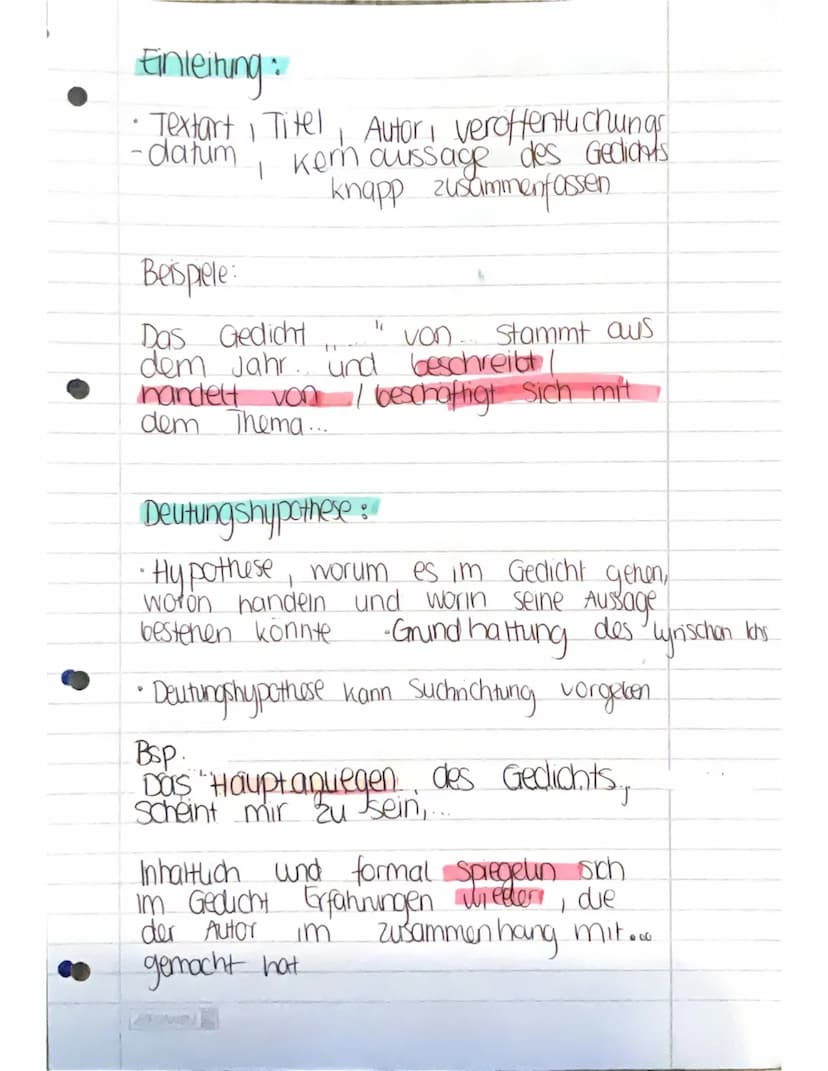 Einleitung:
· Textart, Titel, Autor, veröffentlichungs
-datum, Kernaussage des Gedichts
knapp zusammenfassen
Beispiele:
Das Gedicht „...." von... stammt aus
dem Jahr... und beschreibt /
handelt von / beschäftigt sich mit
dem Thema...
Deutungshypothese:
· Hypothese, worum es im Gedicht gehen,
wofon handeln und worin seine Aussage
bestehen könnte - Grundhaltung des lyrischen Ichs
· Deutungshypothese kann Suchrichtung vorgeben
Bsp.
Das Hauptanliegen des Gedichts,
scheint mir zu sein,...
Inhaltlich und formal spiegeln sich
im Gedicht Erfahrungen wieder, die
der Autor im zusammenhang mit...
gemacht hat